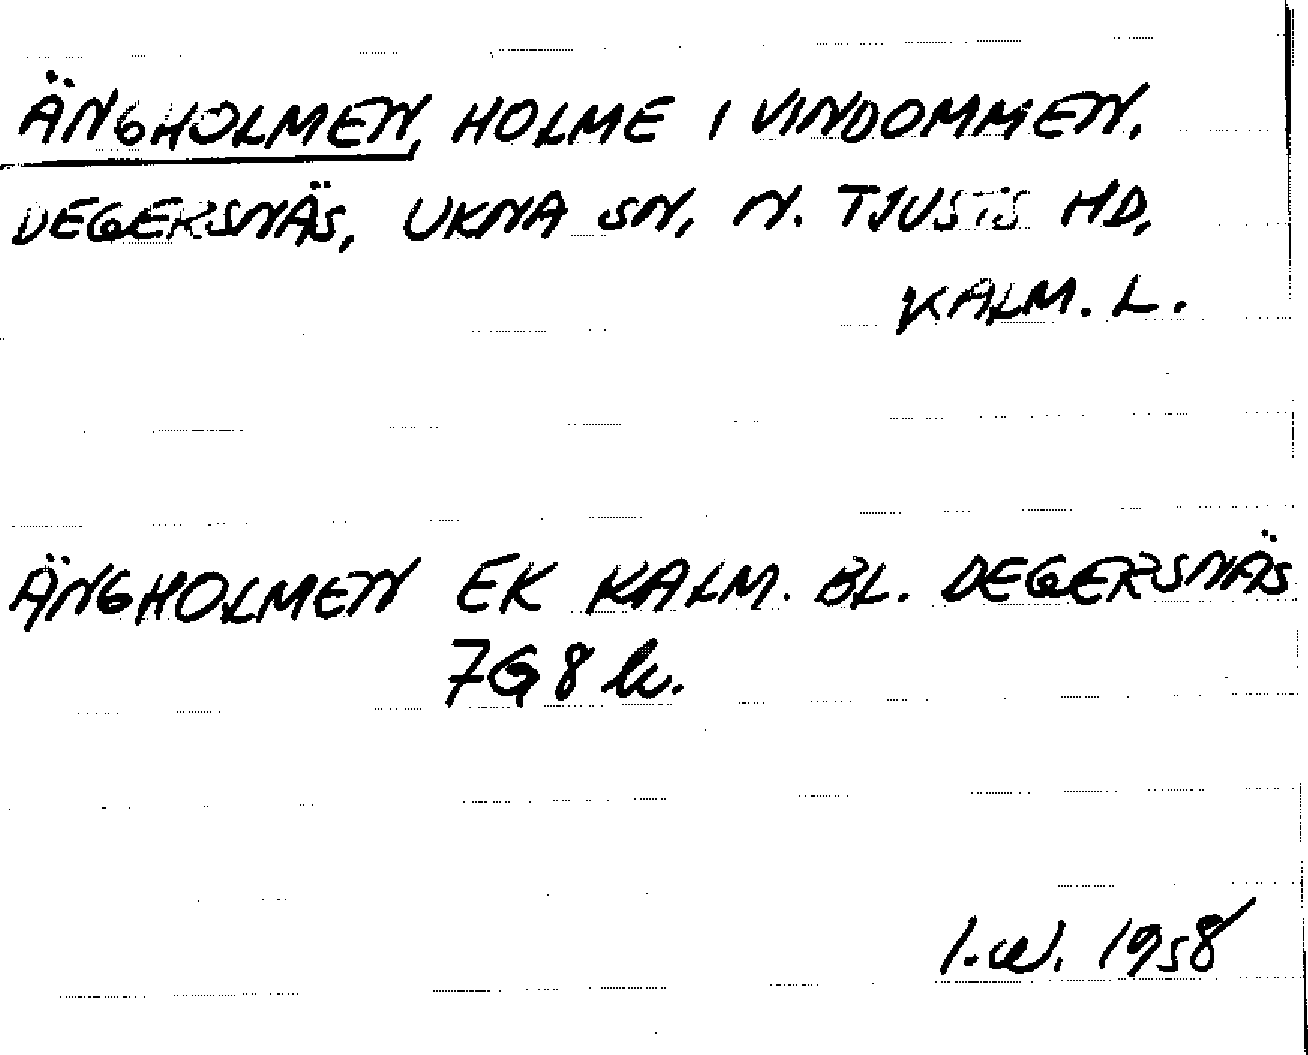 ÄNGHOLMEN, HOLME I VINDOMMEN.
DEGERSNÄS, UKNA SN, N. TJUSTS HD,
KALM. L.
ÄNGHOLMEN EK KALM. BL. DEGERSNÄS
7G8h.
I.W. 1958